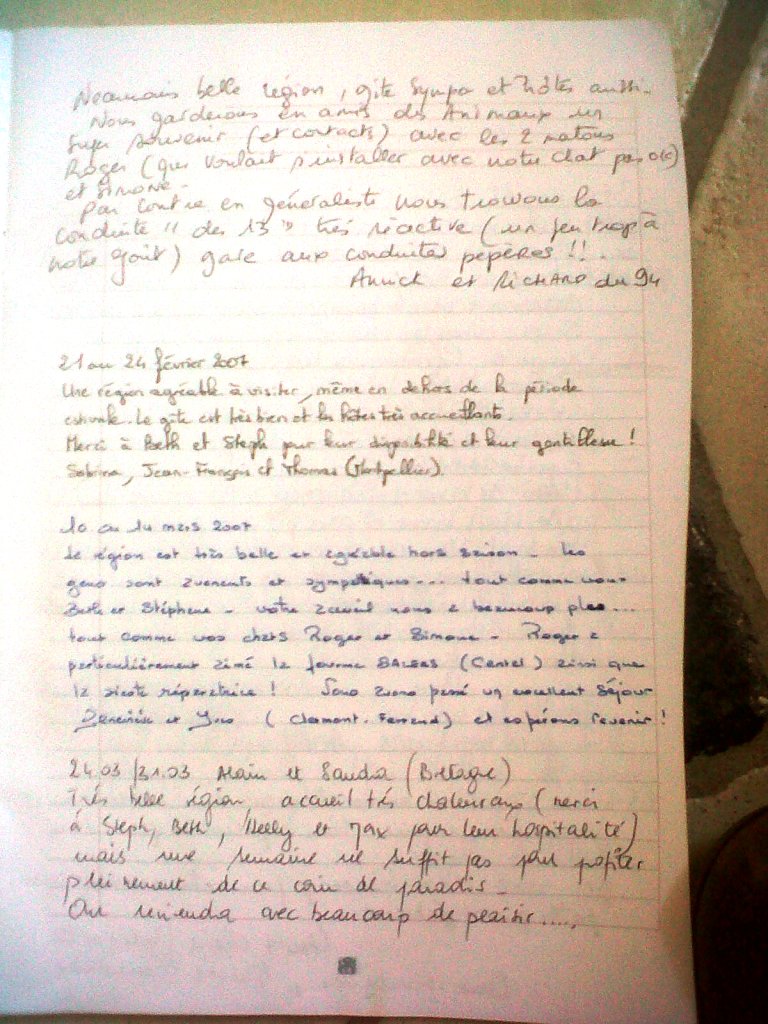 Néanmoins belle région, gîte sympa et hôtes aussi.
Nous garderons en amis des Animaux un
super souvenir (et contacts) avec les 2 matous
Roger (qui voulait s'installer avec notre chat pas ok)
et Simone.
Par contre en généraliste nous trouvons la
conduite "des 13" très réactive (un peu trop à
notre goût) gare aux conduites pépères !!.
Annick et Richard du 94
21 au 24 février 2007
Une région agréable à visiter, même en dehors de la période
estivale. Le gîte est très bien et les hôtes très accueillants.
Merci à Beth et Steph pour leur disponibilité et leur gentillesse !
Sabrina, Jean-François et Thomas (Montpellier)
10 au 14 mars 2007
La région est très belle et agréable hors saison. Les
gens sont avenants et sympatiques... tout comme vous
Beth et Stéphane. Votre accueil nous a beaucoup plu...
tout comme vos chats Roger et Simone. Roger a
particulièrement aimé la fourme (Cantal) ainsi que
la sieste réparatrice ! Nous avons passé un excellent séjour
et Yves (Clermont-Ferrand) et espérons revenir !
24.03/31.03 Alain et Sandra (Bretagne)
Très belle région, accueil très chaleureux (merci
à Steph, Beth, Nelly et Max pour leur hospitalité)
mais une semaine ne suffit pas pour profiter
pleinement de ce coin de paradis.
On reviendra avec beaucoup de plaisir.....